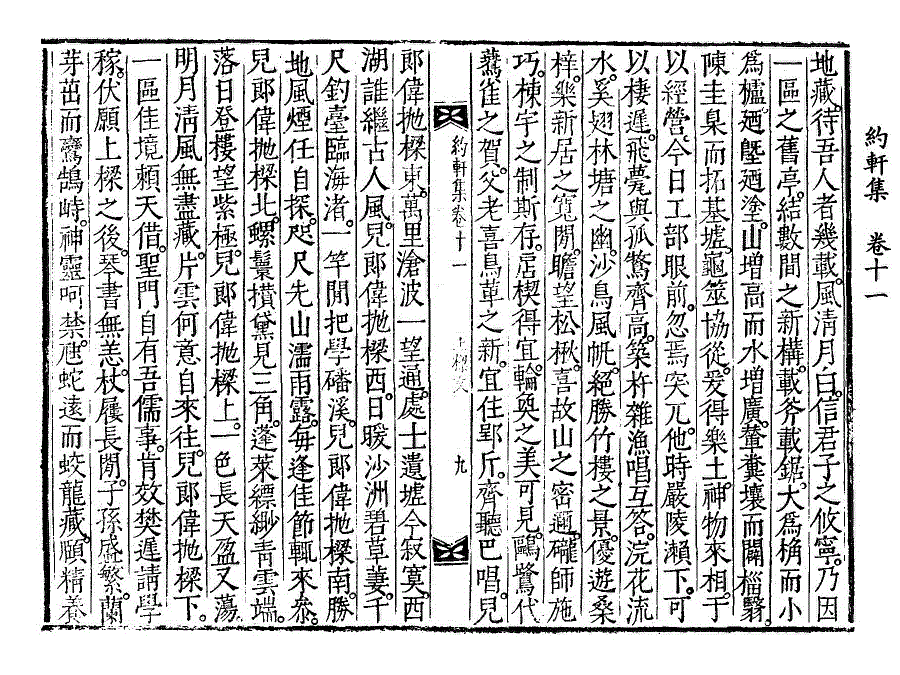 約軒集 卷十一
地藏。待吾人者幾載。風淸月白。信君子之攸寧。乃因
一區之舊亭。結數間之新構。載斧載鋸。大爲桷而小
爲櫨。廼墍廼塗。山增高而水增廣。鳌糞壤而闢榴翳。
陳圭臬而拓基墟。龜筮協從。爰得樂土。神物來相。于
以經營。今日工部眼前。忽焉突兀。他時嚴陵瀨下。可
以棲遲。飛甍與孤鶩齊高。築杵雜漁唱互答。浣花流
水。奚翅林塘之幽。沙鳥風帆。絶勝竹樓之景。優遊桑
梓。樂新居之寬閒。瞻望松楸。喜故山之密邇。礲師施
巧。棟宇之制斯存。扂楔得宜。輪奐之美可見。鷗鷺代
鷰雀之賀。父老喜鳥革之新。宜住郢斤。齊聽巴唱。兒
約軒集卷十一 上樑文 九
郞偉抛樑東。萬里滄波一望通。處士遺墟今寂寞。西
湖誰繼古人風。兒郞偉抛樑西。日暖沙洲碧草萋。千
尺釣臺臨海渚。一竿閒把學磻溪。兒郞偉抛樑南。勝
地風煙任自探。咫尺先山濡雨露。每逢佳節輒來叅。
兒郞偉抛樑北。螺鬟攅黛見三角。蓬萊縹緲靑雲端。
落日登樓望紫極。兒郞偉抛樑上。一色長天盈又蕩。
明月淸風無盡藏。片雲何意自來往。兒郞偉抛樑下。
一區佳境賴天借。聖門自有吾儒事。肯效樊遲請學
稼。伏願上樑之後。琴書無恙。杖屨長閒。子孫盛繁。蘭
芽茁而鸞鵠峙。神靈呵禁。虺蛇遠而蛟龍藏。頤精養